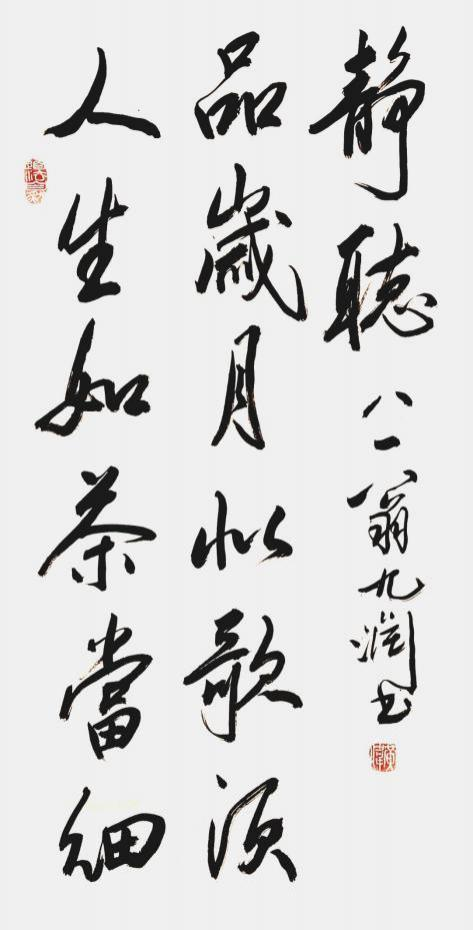 人生如茶當細
品歲月似歌須
靜聴
八一翁九潤书